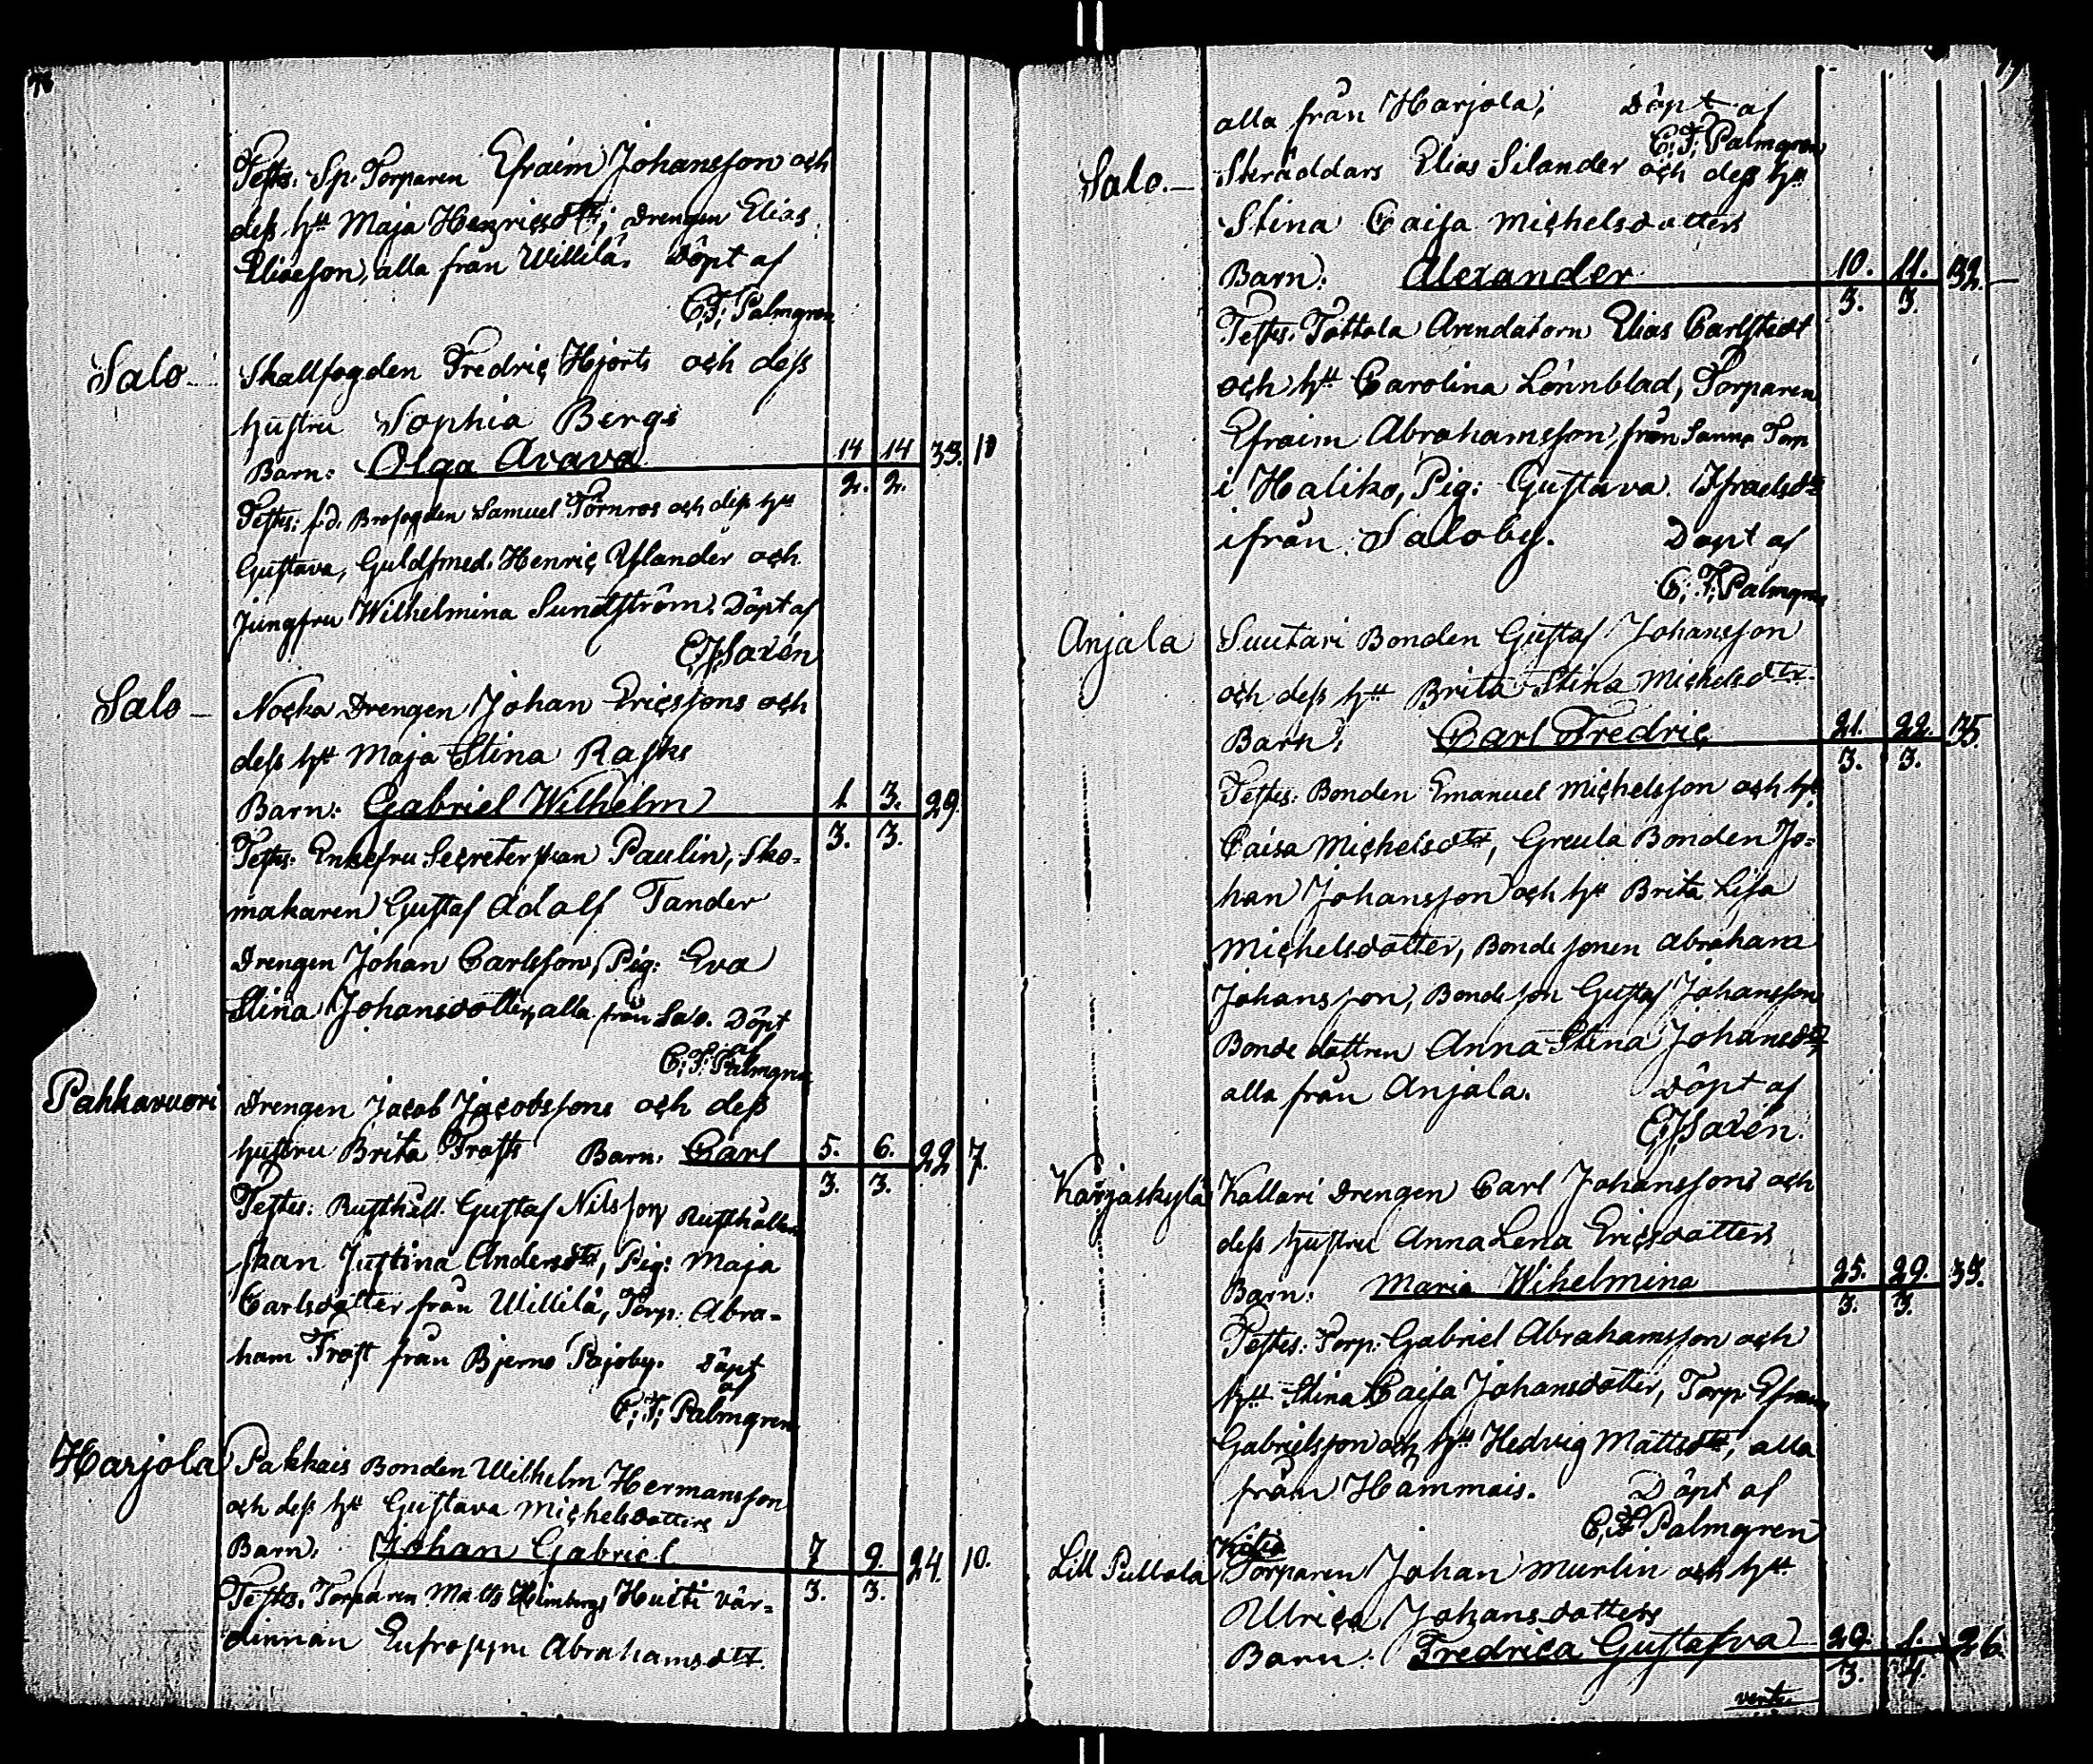 Testes: Sp. Torparen Efraim Johansson och
dess h:u Maja Henricsdtr; Drengen Elias
Eliasson, alla från Willilä. Döpt af
C. F. Palmgren
Salo. Skallfogden Fredric Hjorts och dess
hustru Sophia Bergs
Barn: Olga Avava 14/2. 14/2. 33. 10
Testes: f.d. Brofogden Samuel Törnros och dess h:u
Gustava, Guldsmed. Henric Uslander och
Jungfru Wilhelmina Sundström. Döpt af
Saxén
Salo Nocka Drengen Johan Ericssons och
dess h:u Maja Stina Rasks
Barn: Gabriel Wilhelm 1/3. 3./3. 29.
Testes: Enkefru Secreterskan Paulin, Sko-
makaren Gustaf Adolf Tander
Drengen Johan Carlsson, Pig: Eva
Stina Johansdotter, alla från Salo. Döpt
af
C. F. Palmgren
Pahkavuori Drengen Jacob Jacobssons och dess
hustru Brita Trofts Barn: Carl 5./3. 6./3. 22 7.
Testes: Rusthåll. Gustaf Nilsson Rusthållar
skan Justina Andersdtr, Pig: Maja
Carlsdotter från Willilä, Torp: Abra-
ham Troft från Bjerno Pajoby. Döpt
af
C. F. Palmgren
Harjola Pakkais Bonden Wilhelm Hermansson
och dess h:u Gustava Michelsdotters
Barn: Johan Gabriel 7/3. 9./3. 24. 10.
Testes. Torparen Matts Heimberg, Huiti vär-
dinnan Eufrosyne Abrahamsdtr.
alla från Harjola; Döpt af
C. F. Palmgren
Salo. Skräddars Elias Silander och dess h:u
Stina Caisa Michelsdotters
Barn: Alexander 10./3. 11./3. 32.
Testes. Tottola Arendatorn Elias Carlstedt
och h:u Carolina Lönnblad, Torparen
Efraim Abrahamsson från Sanna Torp
i Haliko, Pig: Gustava Israelsdtr
ifrån Saloby. Döpt af
C. F. Palmgren
Anjala Suutari Bonden Gustaf Johansson
och dess h:u Brita Stina Michelsdtr.
Barn: Carl Fredric 21./3. 22./3. 35.
Testes: Bonden Emanuel Michelsson och h:u
Caisa Michelsdtr, Greula Bonden Jo-
han Johansson och h:u Brita Lisa
Michelsdotter, Bonde sonen Abraham
Johansson, Bonde son Gustaf Johansson
Bonde dottren Anna Stina Johansdtr
alla från Anjala. Döpt af
Saxén.
Karjaskylä Kallari Drengen Carl Johanssons och
dess hustru Anna Lena Ericsdotters
Barn: Maria Wihelmina 25./3. 29./3. 33.
Testes: Torp: Gabriel Abrahamsson och
h:u Stina Caisa Johansdotter, Torp: Efraim
Gabrielsson och h:u Hedvig Mattsdtr, alla
från Hämmäis. Döpt af
C. F. Palmgren
Kotio
Lill Pullola Torparen Johan Murlin och h:u
Ulrica Johansdotters
Barn: Fredrica Gustafva 29./3. 1./4. 26.
verte